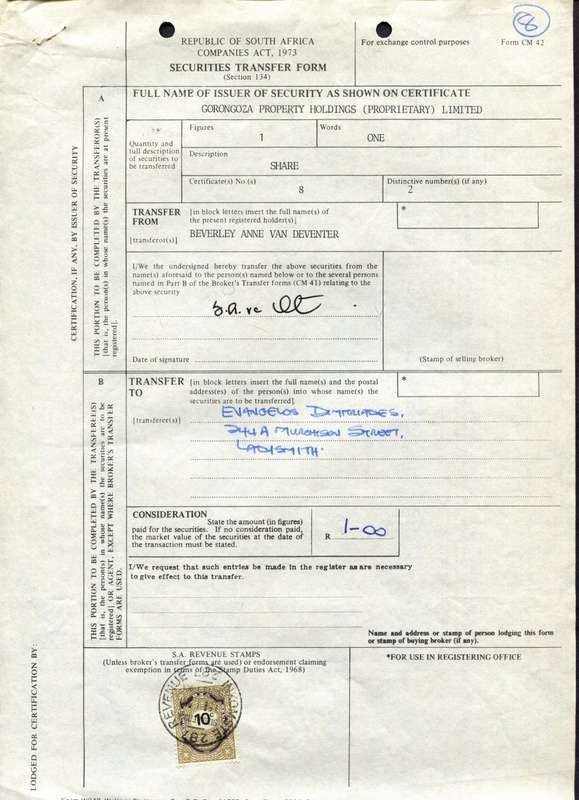 8
REPUBLIC OF SOUTH AFRICA
COMPANIES ACT, 1973
SECURITIES TRANSFER FORM
(Section 134)
For exchange control purposes
Form CM 42
A
FULL NAME OF ISSUER OF SECURITY AS SHOWN ON CERTIFICATE
GORONGOZA PROPERTY HOLDINGS (PROPRIETARY) LIMITED
CERTIFICATION, IF ANY, BY ISSUER OF SECURITY
THIS PORTION TO BE COMPLETED BY THE TRANSFEROR(S)
[that is, the person(s) in whose name(s) the securities are at present
registered]
Quantity and
full description
of securities to
be transferred
Figures
1
Words
ONE
Description
SHARE
Certificate(s) No.(s)
8
Distinctive number(s) (if any)
2
TRANSFER
FROM
[transferor(s)]
[in block letters insert the full name(s) of
the present registered holder(s)]
BEVERLEY ANNE VAN DEVENTER
*
I/We the undersigned hereby transfer the above securities from the
name(s) aforesaid to the person(s) named below or to the several persons
named in Part B of the Broker's Transfer forms (CM 41) relating to the
above security
Date of signature
(Stamp of selling broker)
B
THIS PORTION TO BE COMPLETED BY THE TRANSFEREE(S)
[that is, the person(s) in whose name(s) the securities are to be
registered] OR AGENT, EXCEPT WHERE BROKER'S TRANSFER
FORMS ARE USED.
TRANSFER
TO
[transferee(s)]
[in block letters insert the full name(s) and the postal
address(es) of the person(s) into whose name(s) the
securities are to be transferred].
*
EVANGELOS DIMITRIADES,
244A MURCHISON STREET,
LADYSMITH.
CONSIDERATION
State the amount (in figures)
paid for the securities. If no consideration paid,
the market value of the securities at the date of
the transaction must be stated.
R 1-00
I/We request that such entries be made in the register as are necessary
to give effect to this transfer.
Name and address or stamp of person lodging this form
or stamp of buying broker (if any).
LODGED FOR CERTIFICATION BY:
S.A. REVENUE STAMPS
(Unless broker's transfer forms are used) or endorsement claiming
exemption in terms of the Stamp Duties Act, 1968)
*FOR USE IN REGISTERING OFFICE
REVENUE
10